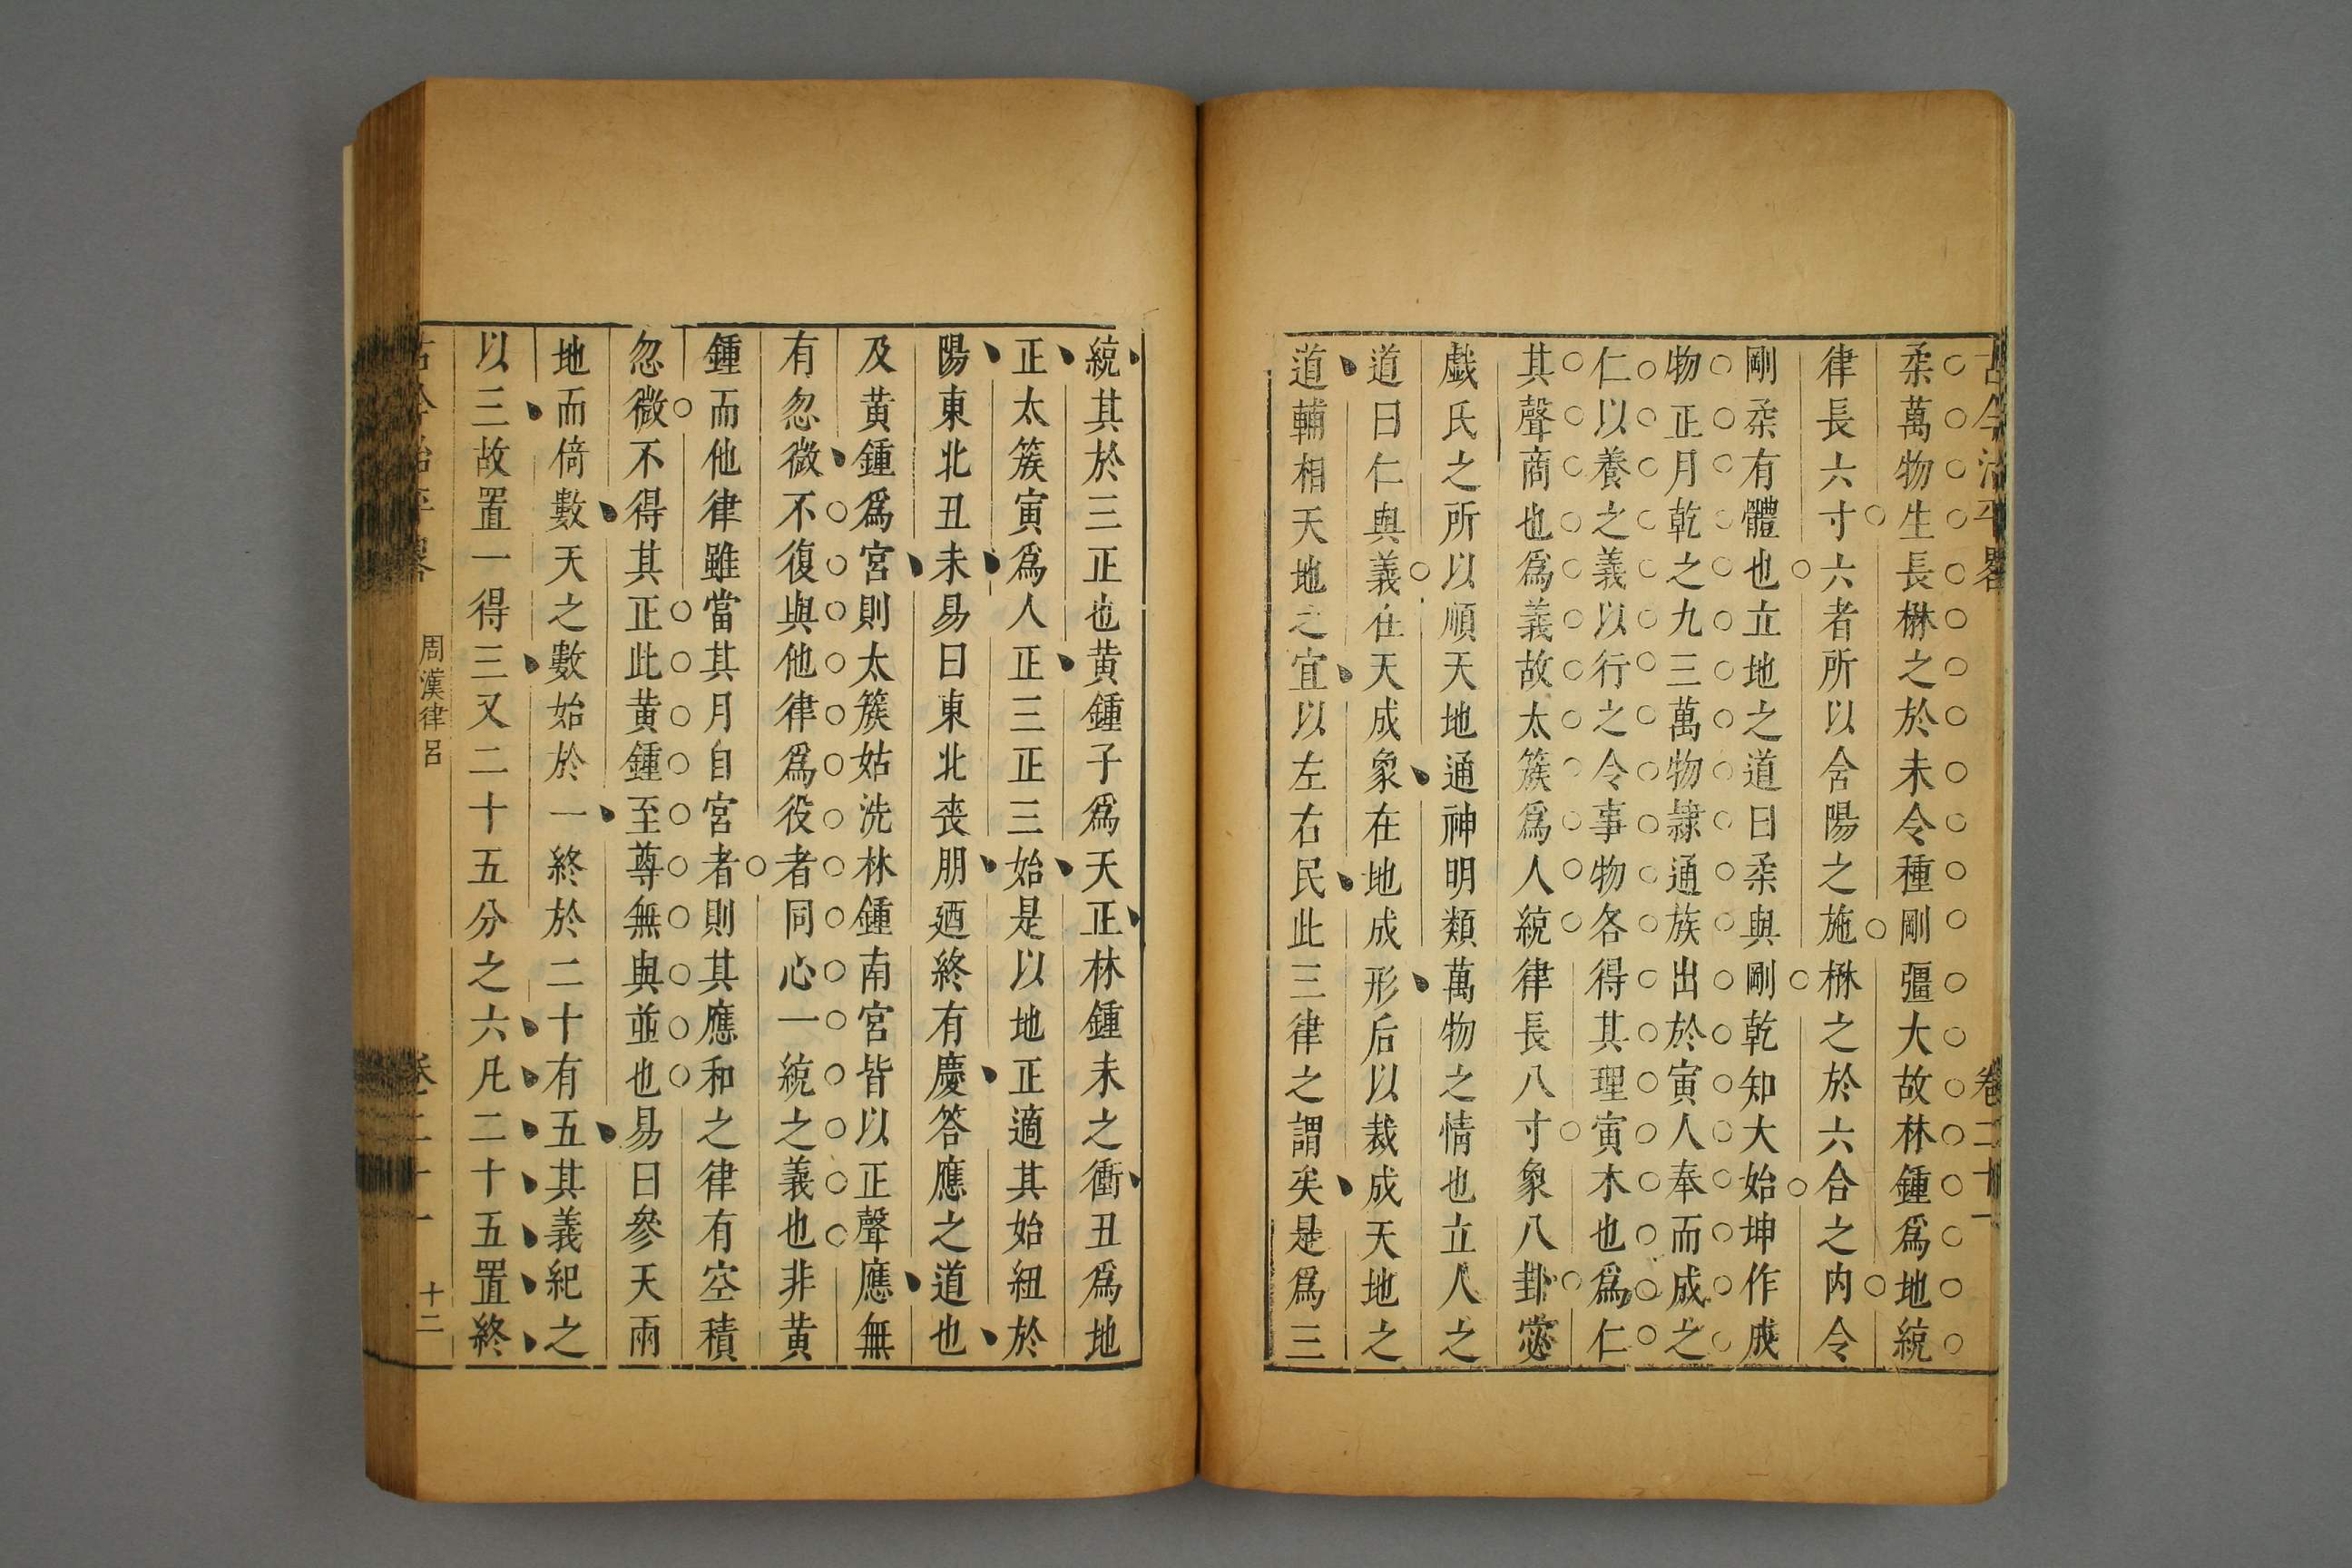 古今治平畧
卷二十一
柔萬物生長楙之於未令種剛彊大故林鍾爲地統
律長六寸六者所以含陽之施楙之於六合之内令
剛柔有體也立地之道曰柔與剛乾知大始坤作成
物正月乾之九三萬物隷通族出於寅人奉而成之
仁以養之義以行之令事物各得其理寅木也爲仁
其聲商也爲義故太簇爲人統律長八寸象八卦宓
戯氏之所以順天地通神明類萬物之情也立人之
道曰仁與義在天成象在地成形后以裁成天地之
道輔相天地之宜以左右民此三律之謂矣是爲三
統其於三正也黄鍾子爲天正林鍾未之衝丑爲地
正太簇寅爲人正三正三始是以地正適其始紐於
陽東北丑未易曰東北喪朋廼終有慶答應之道也
及黃鍾爲宮則太簇姑洗林鍾南宮皆以正聲應無
有忽微不復與他律爲役者同心一統之義也非黄
鍾而他律雖當其月自宮者則其應和之律有空積
忽微不得其正此黄鍾至尊無與並也易曰參天兩
地而倚數天之數始於一終於二十有五其義紀之
以三故置一得三又二十五分之六凡二十五置終
古今治平畧
周漢律呂
卷二十一
十二